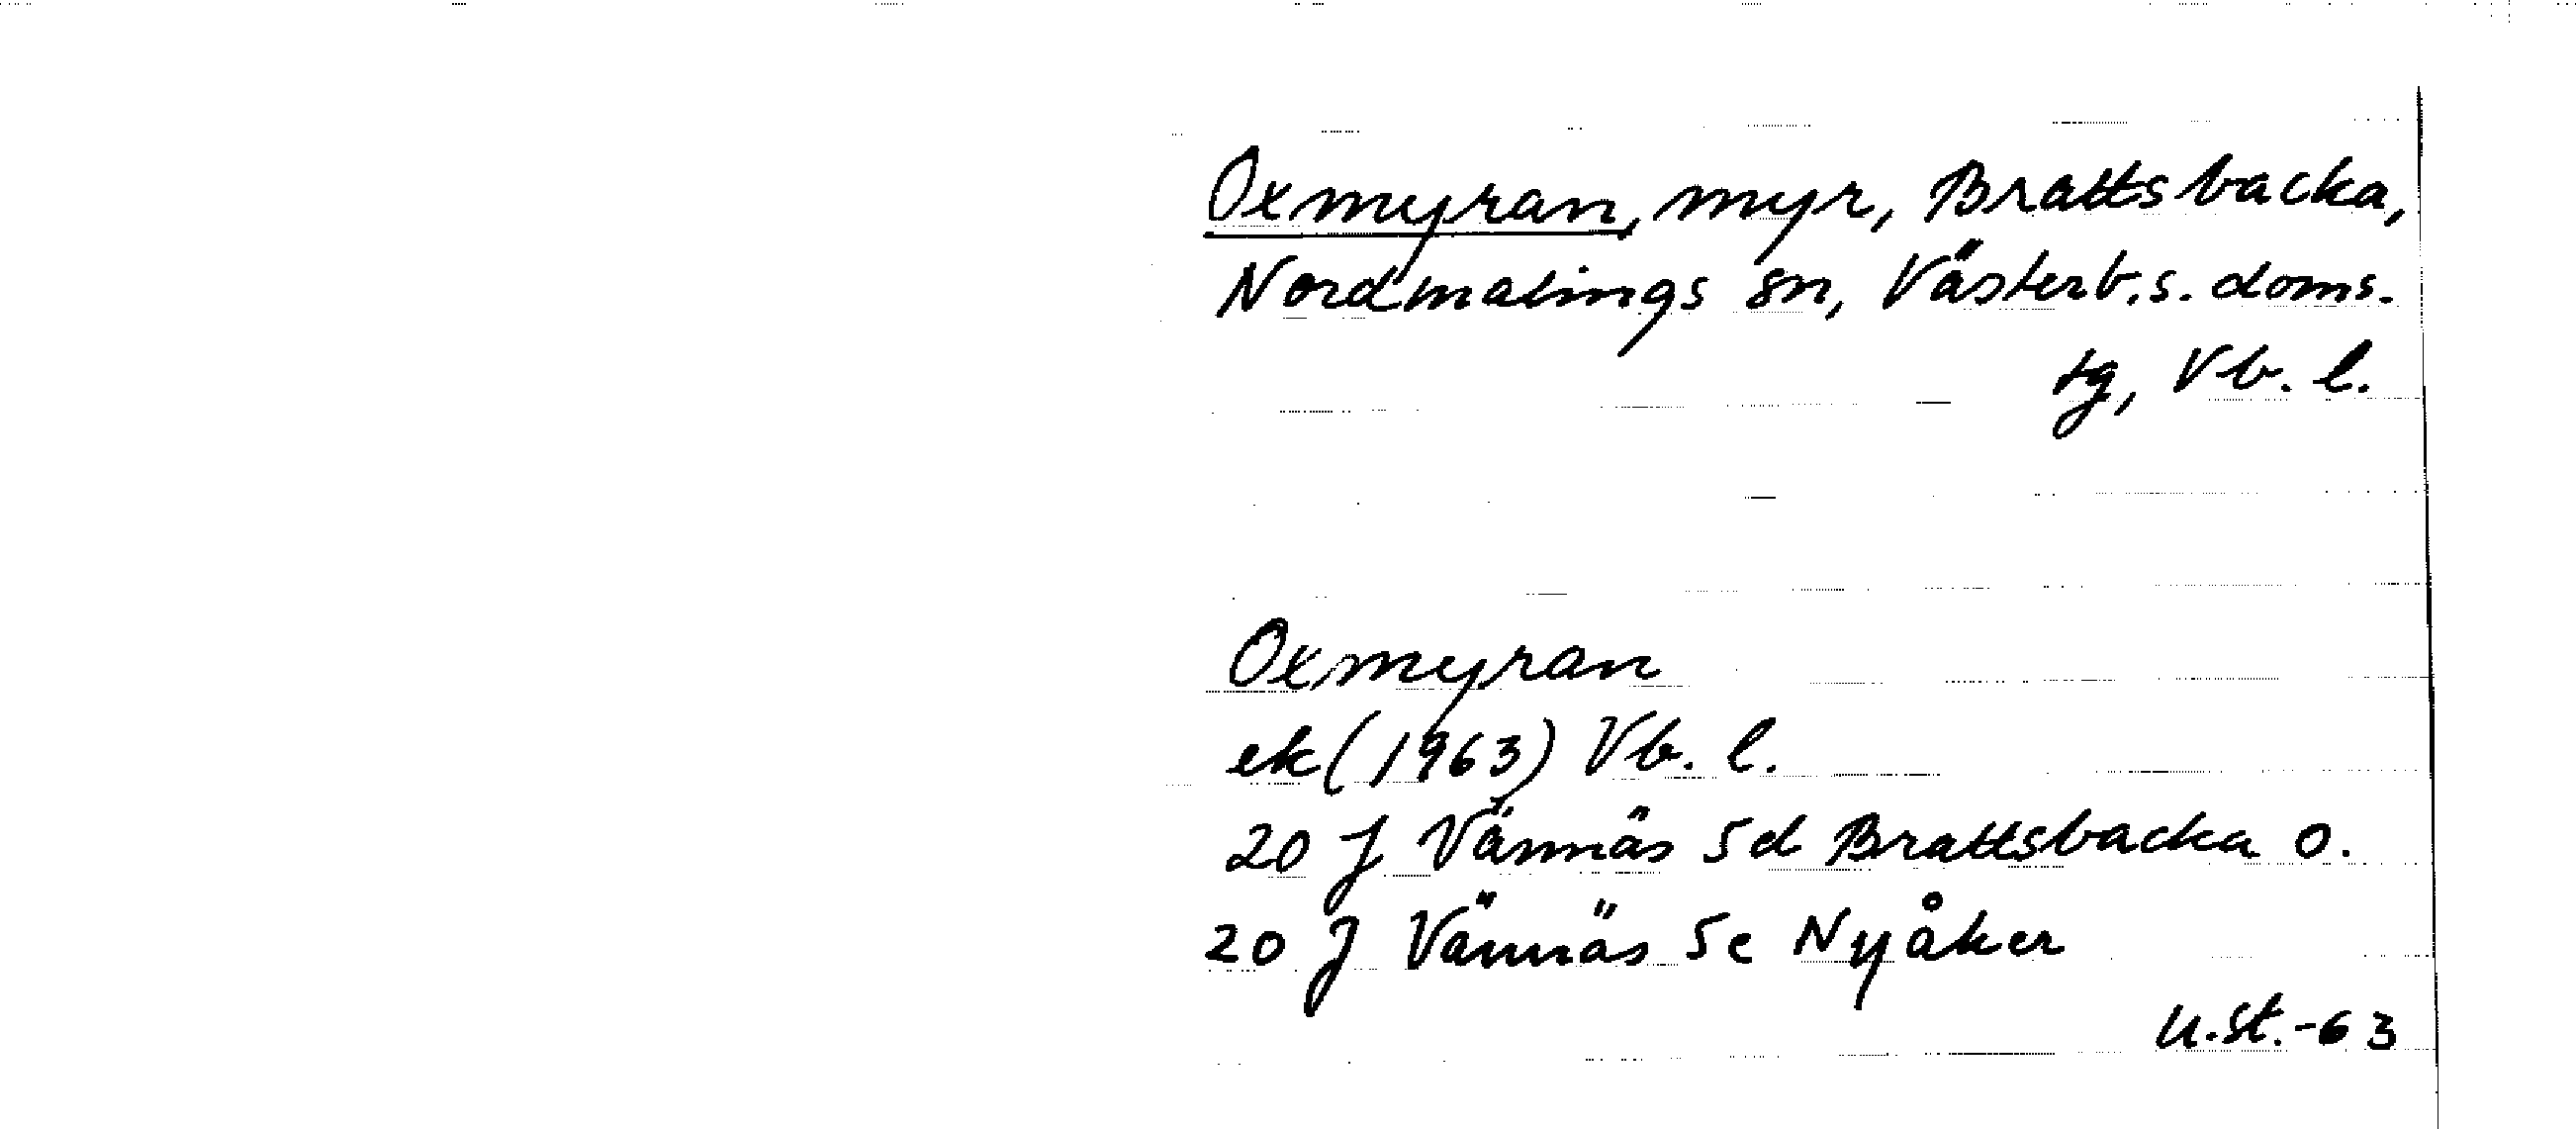 Oxmyran, myr, Brattsbacka,
Nordmalings sn, Västerb.s. doms.
tg, Vb. l.
Oxmyran
ek (1963) Vb. l.
20 J Vännäs 5d Brattsbacka O.
20 J Vännäs 5e Nyåker
U.St.-63